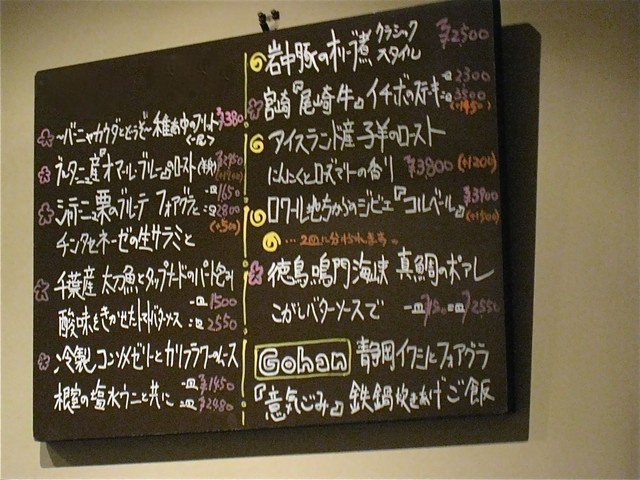 ～バーニャカウダとどうぞ～ 稚鮎のフリット ¥1380
ブルターニュ産『オマール・ブルー』のロースト
栗のブルーテ フォアグラと 1650
2800
(+500)
チンタセネーゼの生サラミと
千葉産 太刀魚とタップナードのパート包み
一皿 1500
酸味をきかせたトマトバターソース 二皿 2550
冷製コンソメゼリーとカリフラワーのムース
一皿 ¥1450
根室の塩水ウニと共に 二皿 ¥2480
岩中豚のオリーブ煮 クラシックスタイル ¥2500
宮崎『尾崎牛』イチボのステーキ 2300
3500
アイスランド産 子羊のロースト
にんにくとローズマリーの香り ¥3800 (+1200)
ロワール地方からのジビエ『コルベール』 ¥3900
(+1300)
…2皿に分けれます。
徳島 鳴門海峡 真鯛のポアレ
こがしバターソースで 一皿 二皿 2550
Gohan 静岡イクラとフォアグラ
『意気ごみ』鉄鍋炊きあげご飯